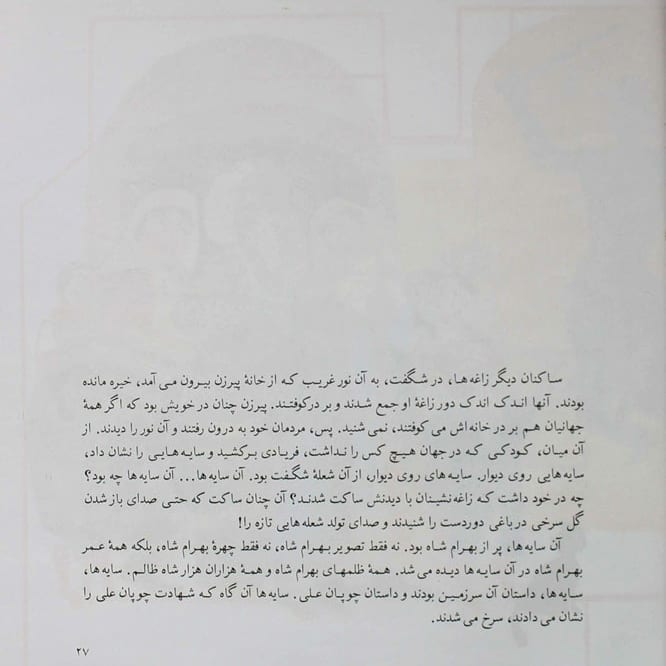 ساکنان دیگر زاغه‌ها، در شگفت، به آن نور غریب که از خانهٔ پیرزن بیرون می‌آمد، خیره مانده
بودند. آنها اندک اندک دور زاغهٔ او جمع شدند و بر درکوفتند. پیرزن چنان در خویش بود که اگر همهٔ
جهانیان هم بر در خانه‌اش می‌کوفتند، نمی‌شنید. پس، مردمان خود به درون رفتند و آن نور را دیدند. از
آن میان، کودکی که در جهان هیچ کس را نداشت، فریادی برکشید و سایه‌هایی را نشان داد،
سایه‌هایی روی دیوار. سایه‌های روی دیوار، از آن شعلهٔ شگفت بود. آن سایه‌ها... آن سایه‌ها چه بود؟
چه در خود داشت که زاغه‌نشینان با دیدنش ساکت شدند؟ آن چنان ساکت که حتی صدای باز شدن
گل سرخی در باغی دوردست را شنیدند و صدای تولد شعله‌هایی تازه را!
آن سایه‌ها، پر از بهرام شاه بود. نه فقط تصویر بهرام شاه، نه فقط چهرهٔ بهرام شاه، بلکه همهٔ عمر
بهرام شاه در آن سایه‌ها دیده می‌شد. همهٔ ظلمهای بهرام شاه و همهٔ هزاران هزار شاه ظالم. سایه‌ها،
سایه‌ها، داستان آن سرزمین بودند و داستان چوپان علی. سایه‌ها آن گاه که شهادت چوپان علی را
نشان می‌دادند، سرخ می‌شدند.
۲۷